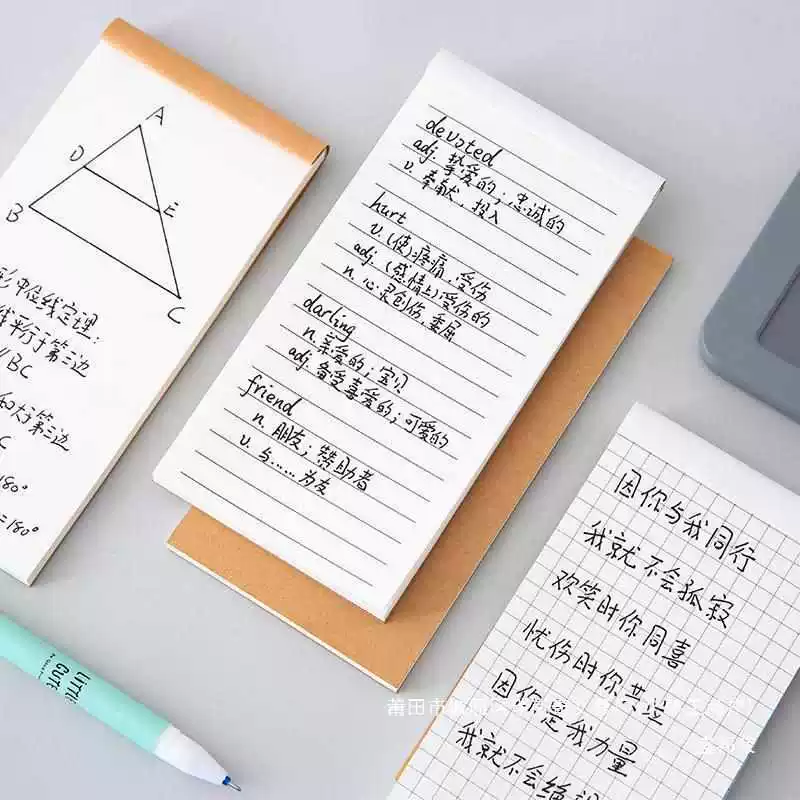 A
D
E
B
C
形中位线定理:
线平行于第三边
//BC
和大于第三边
C
180°
=180°
devoted
adj. 挚爱的；忠诚的
v. 奉献，投入
hurt
v. (使)疼痛，受伤
adj. (感情上)受伤的
n. 心灵创伤，委屈
darling
n. 亲爱的；宝贝
adj. 备受喜爱的；可爱的
friend
n. 朋友；赞助者
v. 与……为友
因你与我同行
我就不会孤寂
欢笑时你同喜
忧伤时你共
因你是我力量
我就不会绝
LITTLE
CUTE
莆田市